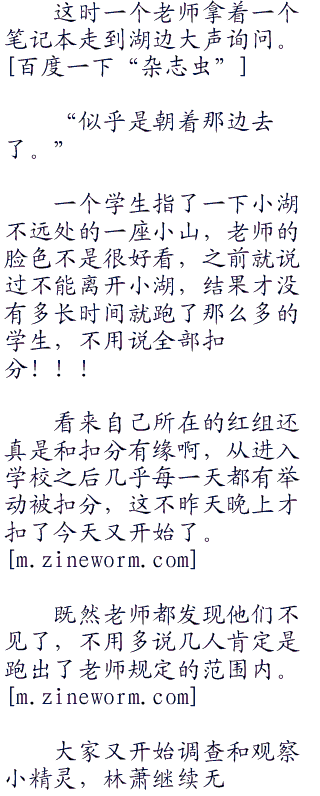 这时一个老师拿着一个
笔记本走到湖边大声询问。
[百度一下“杂志虫”]
“似乎是朝着那边去
了。”
一个学生指了一下小湖
不远处的一座小山，老师的
脸色不是很好看，之前就说
过不能离开小湖，结果才没
有多长时间就跑了那么多的
学生，不用说全部扣
分！！！
看来自己所在的红组还
真是和扣分有缘啊，从进入
学校之后几乎每一天都有举
动被扣分，这不昨天晚上才
扣了今天又开始了。
[m.zineworm.com]
既然老师都发现他们不
见了，不用多说几人肯定是
跑出了老师规定的范围内。
[m.zineworm.com]
大家又开始调查和观察
小精灵，林萧继续无